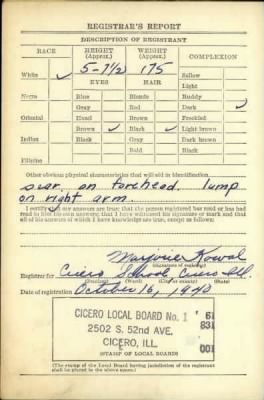 REGISTRAR'S REPORT
DESCRIPTION OF REGISTRANT
RACE HEIGHT (Approx.) WEIGHT (Approx.) COMPLEXION
White ✓ 5-7½ 175 Sallow
Light
EYES HAIR
Negro Blue Blonde Ruddy
Gray Red Dark ✓
Oriental Hazel Brown Freckled
Brown ✓ Black ✓ Light brown
Indian Black Gray Dark brown
Bald Black
Filipino
Other obvious physical characteristics that will aid in identification
scar on forehead lump
on right arm
I certify that my answers are true; that the person registered has read or has had
read to him his own answers; that I have witnessed his signature or mark and that
all of his answers of which I have knowledge are true, except as follows:
Marjorie Kowal
(Signature of registrar)
Registrar for Cicero School Cicero Ill.
(Precinct) (City or county) (State)
Date of registration October 16, 1940
CICERO LOCAL BOARD No. 1 61
2502 S. 52nd AVE. 831
CICERO, ILL. 001
(STAMP OF LOCAL BOARD)
(The stamp of the Local Board having jurisdiction of the registrant
shall be placed in the above space.)